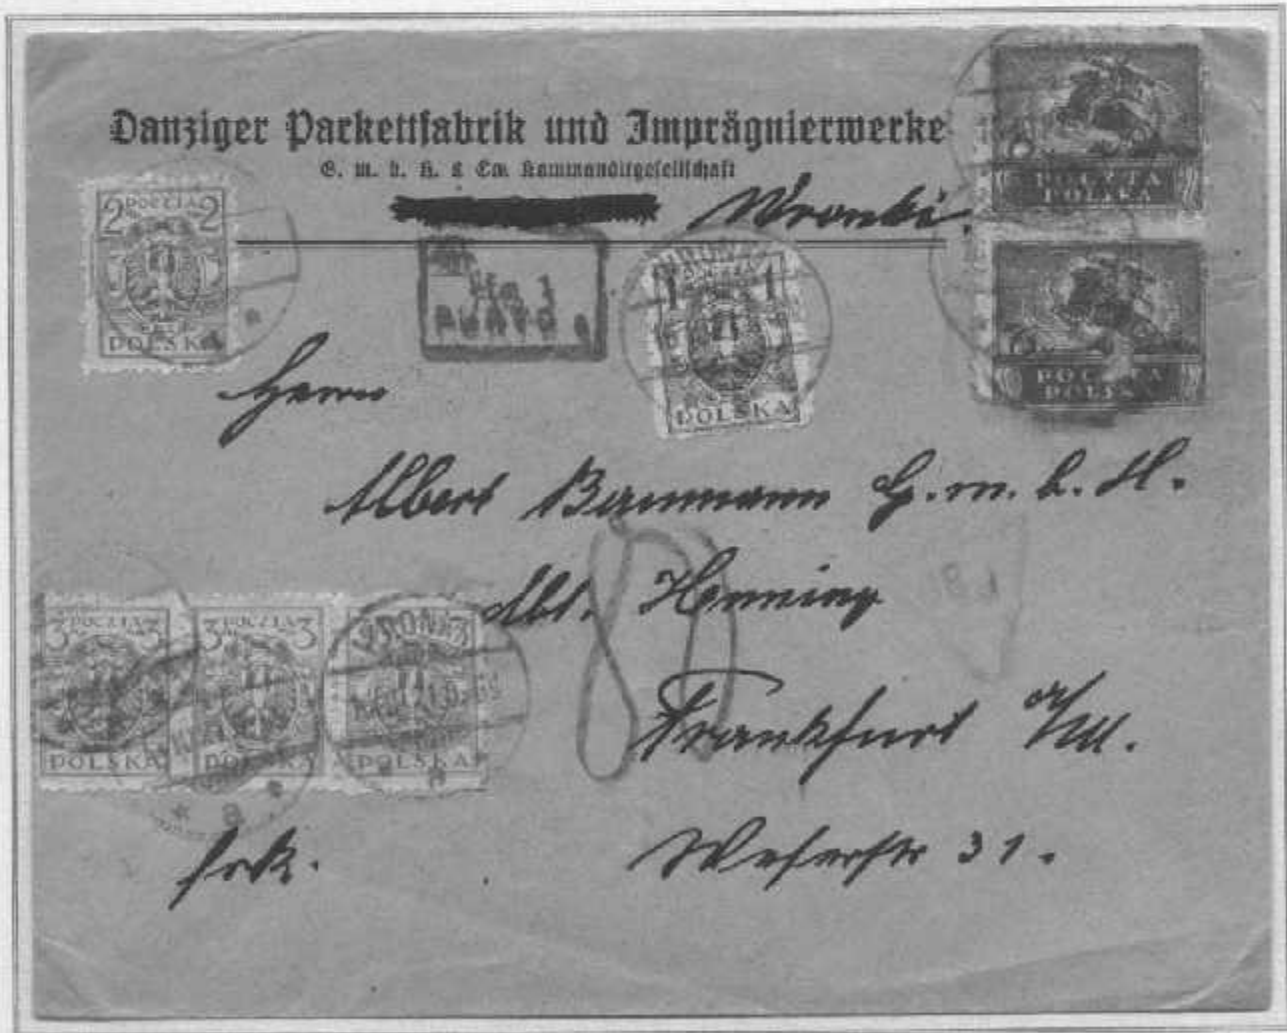 Danziger Parkettfabrik und Imprägnierwerke
G. m. b. H. & Co. Kommanditgesellschaft
Wronki.
POCZTA POLSKA
POCZTA POLSKA
2 POCZTA 2
POLSKA
1 POCZTA 1
POLSKA
Herrn
Albert Baumann G.m.b.H.
Abt. Henning
Frankfurt a/M.
Weserstr 31.
3 POCZTA 3
POLSKA
3 POCZTA 3
POLSKA
3
POLSKA
80